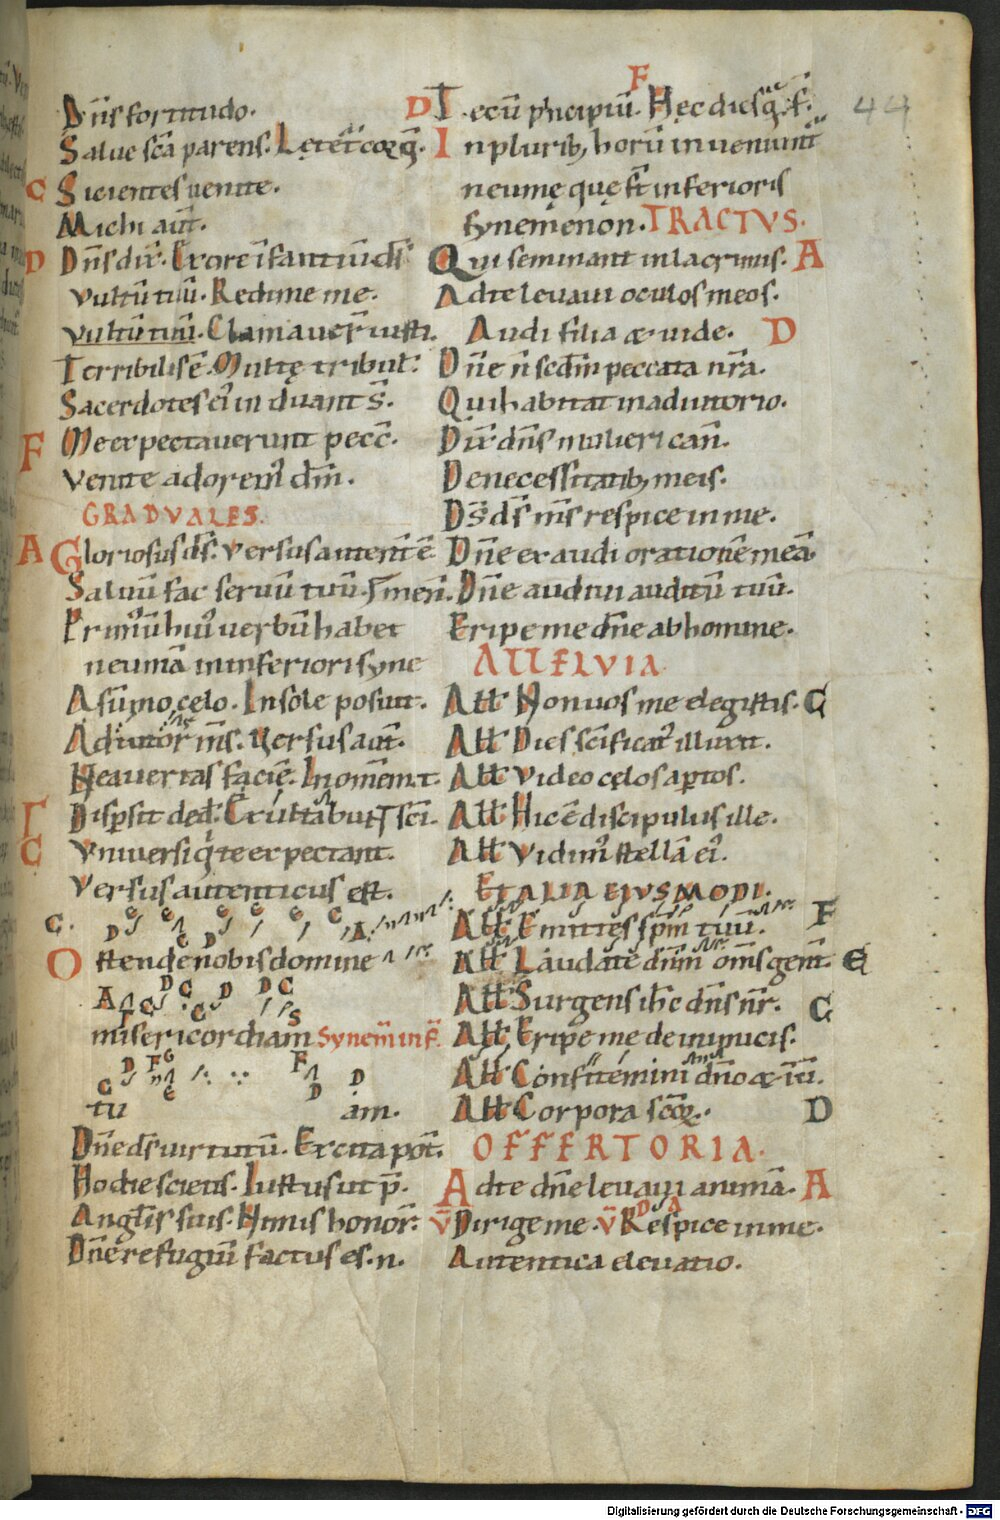 44
Dn̄s fortitudo.
Salue sc̄a parens. Lętet̄ cor q̄.
C Sicientes uenite.
Michi aut̄.
D Dn̄s dix̄. Ex ore īfantiū ds̄
Vultū tuū. Redime me.
Vultū tuū. Clamauer̄ iusti.
Terribilis ē. Multę tribul̄.
Sacerdotes ei' induant s̄.
F Me expectauerunt pecc̄.
Venite adorem' dm̄.
GRADVALES.
A Gloriosus ds̄. Versus autent̄ ē
Saluū fac seruū tuū.
Primū hui' uersū habet
neumā in inferiori syne
A sūmo cęlo. In sole posuit.
Adiutor ms̄. Versus aut̄.
Ne auertas faciē. In om̄em t̄.
Dispsit ded̄. Exultabunt sc̄i.
C Vniuersi q̄ te expectant.
Versus autenticus est.
C. D
Ostende nobis domine
A D C D D C
misericordiam Synem̄ in f̄.
C D F G F D D
tu am.
Dn̄e ds̄ uirtutū. Excita pot̄.
Hodie scietis. Iustus ut p̄.
Angl̄is suis. Nimis honor̄.
Dn̄e refugiū factus es. n.
F
D Tecū principiū. Hęc dies q̄. f̄.
In plurib; horū inueniunt̄
neumę quę st̄ inferioris
synemenon. TRACTVS.
Qui seminant in lacrimis. A
Ad te leuaui oculos meos.
Audi filia & uide. D
Dn̄e n̄ scd̄m peccata nr̄a.
Qui habitat in adiutorio.
Dix̄ dn̄s mulieri can̄.
De necessitatib; meis.
Ds̄ ds̄ ms̄ respice in me.
Dn̄e exaudi orationē meā.
Dn̄e audiui auditū tuū.
Eripe me dn̄e ab homine.
ALLELVIA
All̄ Non uos me elegistis. G
All̄ Dies sc̄ificat' illuxit.
All̄ Video cęlos aptos.
All̄ Hic ē discipulus ille.
All̄ Vidim' stellā ei'.
ET ALIA EIVSMODI.
All̄ Emittes spm̄ tuū. F
All̄ Laudate dn̄m om̄s gent̄. E
All̄ Surgens ih̄c dn̄s nr̄. G
All̄ Eripe me de inimicis.
All̄ Confitemini dn̄o &
All̄ Corpora sc̄oꝝ. D
OFFERTORIA.
Ad te dn̄e leuaui animā. A
v̄ Dirige me. v̄ Respice in me.
Autentica eleuatio.
Digitalisierung gefördert durch die Deutsche Forschungsgemeinschaft - DFG